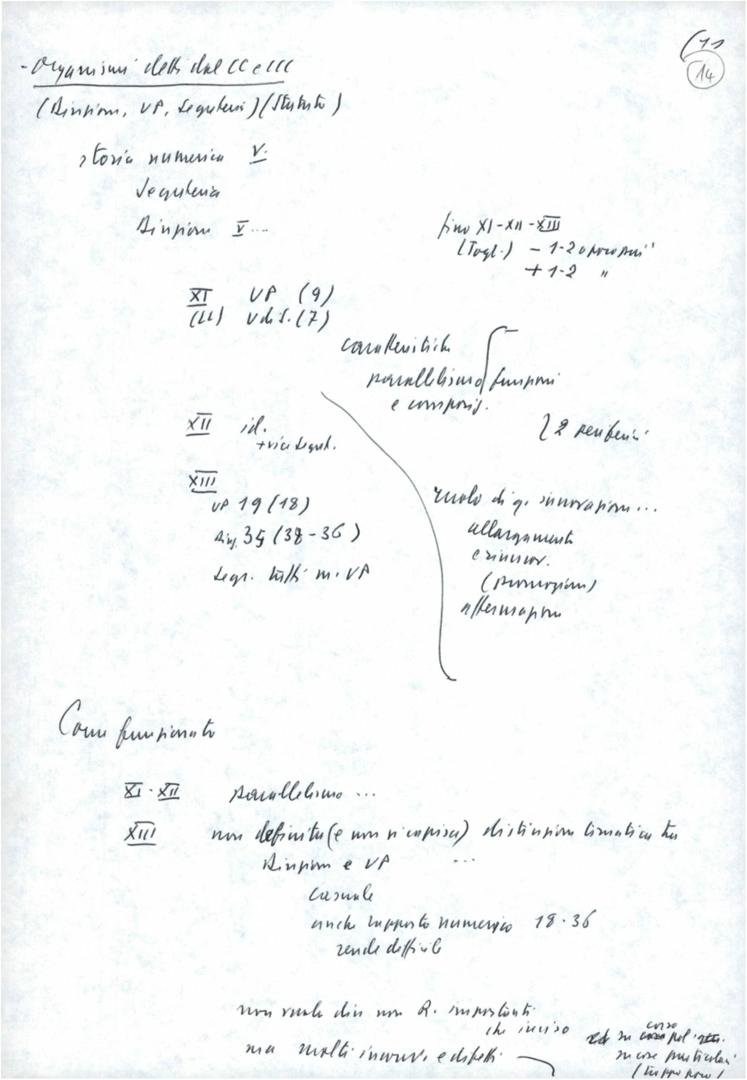 (11
14
- Organismi eletti dal CC e CCC
(Direzione, UP, Segreteria) (Statuto)
storia numerica V.
Segreteria
Direzione V ...
fino XI - XII - XIII
(Togl.) - 1-2 o poco più
+ 1-2 "
XI UP (9)
(LL) U di S. (7)
caratteristiche
parallelismo funzioni
e composiz.
2 periferici
XII id.
+ vice Segret.
XIII
UP 19 (18)
Dir. 35 (38-36)
Segr. tutti m. UP
ruolo di q. innovazioni ...
allargamento
e rinnov.
(promozioni)
affermazione
Come funzionato
XI - XII parallelismo ...
XIII non definita (e non si capisce) distinzione tematica tra
Direzione e UP ...
casuale
anche rapporto numerico 18-36
rende difficile
non vuole dire non R. importanti
che inciso
ma molti inconv. e difetti
su corso pol.
su cose particolari
(troppo poco)